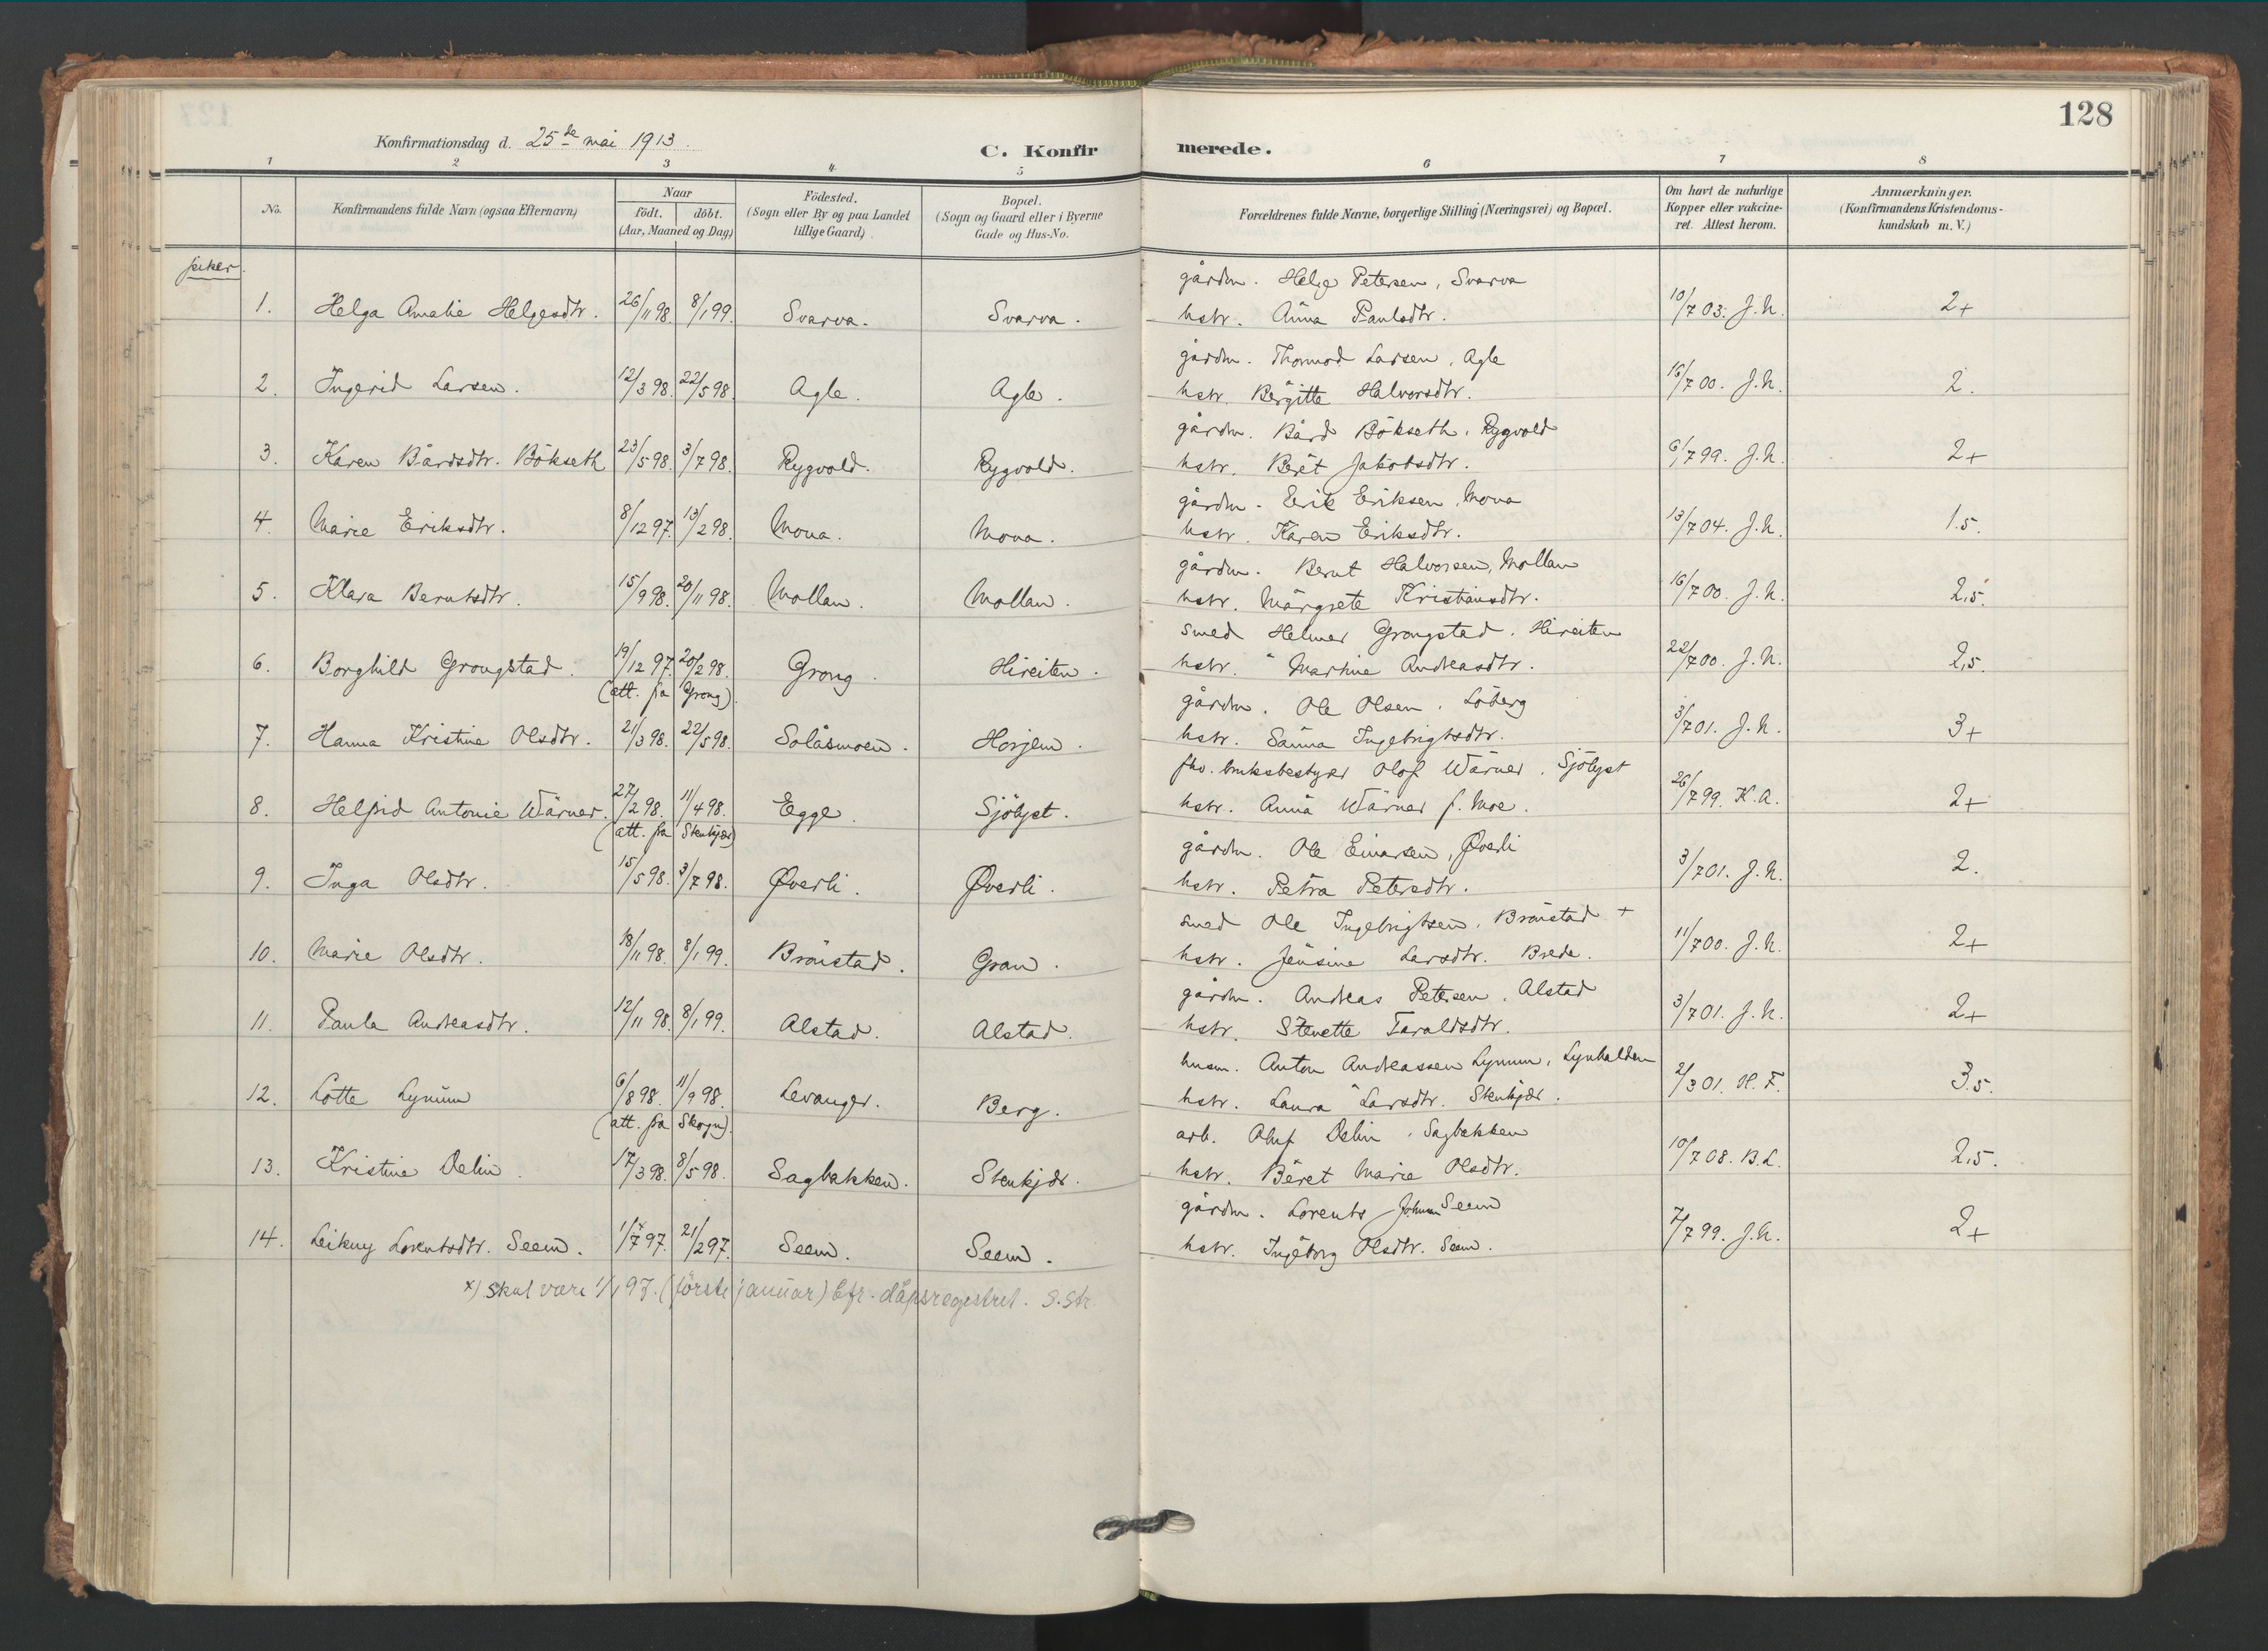 128
Konfirmationsdag d. 25de mai 1913.
C. Konfirmerede.
1 2 3 4 5 6 7 8
No.
Konfirmandens fulde Navn (ogsaa Efternavn)
Naar
födt. döbt.
(Aar, Maaned og Dag)
Födested.
(Sogn eller By og paa Landet
tillige Gaard)
Bopæl.
(Sogn og Gaard eller i Byerne
Gade og Hus-No.
Forældrenes fulde Navne, borgerlige Stilling (Næringsvei) og Bopæl.
Om havt de naturlige
Kopper eller vakcine-
ret. Attest herom.
Anmærkninger.
(Konfirmandens Kristendoms-
kundskab m. V.)
piker.
gårdm. Helge Petersen, Svarva
1. Helga Amalie Helgesdtr. 26/11 98. 8/1 99. Svarva. Svarva. hstr. Anna Paulsdtr. 10/7 03. J.N. 2+
gårdm. Thormod Larsen, Agle
2. Ingerid Larsen. 12/3 98. 22/5 98. Agle. Agle. hstr. Bergitte Halvorsdtr. 16/7 00. J.N. 2.
gårdm. Bård Bökseth, Rygvold
3. Karen Bårdsdtr. Bökseth 23/5 98. 3/7 98. Rygvold. Rygvold. hstr. Beret Jakobsdtr. 6/7 99. J.N. 2+
gårdm. Erik Eriksen, Moua
4. Marie Eriksdtr. 8/12 97. 13/2 98. Moua. Moua. hstr. Karen Eriksdtr. 13/7 04. J.N. 1.5.
gårdm. Bernt Halvorsen, Mollan
5. Klara Berntsdtr. 15/9 98. 20/11 98. Mollan. Mollan. hstr. Margrete Kristiansdtr. 16/7 00. J.N. 2,5.
smed Helmer Grongstad. Hireiten
6. Borghild Grongstad. 19/12 97. 20/2 98. Grong. Hireiten. hstr. Martine Andreasdtr. 22/7 00. J.N. 2,5.
(att. fra Grong)
gårdm. Ole Olsen, Löberg
7. Hanna Kristine Olsdtr. 21/3 98. 22/5 98. Solåsmoen. Horjem. hstr. Sanna Ingebrigtsdtr. 3/7 01. J.N. 3+
fhv. bruksbestyrer Olof Wärner. Sjölyst
8. Helfrid Antonie Wärner. 27/2 98. 11/4 98. Egge. Sjölyst. hstr. Anna Wärner f. Moe. 26/7 99. K.A. 2+
(att. fra Stenkjær)
gårdm. Ole Einarsen, Øverli
9. Inga Olsdtr. 15/5 98. 3/7 98. Øverli. Øverli. hstr. Petra Petersdtr. 3/7 01. J.N. 2.
smed Ole Ingebrigtsen. Brönstad +
10. Marie Olsdtr. 18/11 98. 8/1 99. Brönstad. Gran. hstr. Jensine Larsdtr. Brede. 11/7 00. J.N. 2+
gårdm. Andreas Petersen. Alstad
11. Paula Andreasdtr. 12/11 98. 8/1 99. Alstad. Alstad. hstr. Stenette Taraldsdtr. 3/7 01. J.N. 2+
husm. Anton Andreassen Lynum, Lynhalden
12. Lotte Lynum 6/8 98. 11/9 98. Levanger. Berg. hstr. Laura Larsdtr. Stenkjær. 2/3 01. H.F. 3.5.
(att. fra Skogn).
arb. Oluf Delin. Sagbakken
13. Kristine Delin. 17/3 98. 8/5 98. Sagbakken. Stenkjær. hstr. Beret Marie Olsdtr. 10/7 08. B.L. 2,5.
gårdm. Lorents Johnsen Seem
14. Leikny Lorentsdtr. Seem. 1/7x 97. 21/2 97. Seem. Seem. hstr. Ingeborg Olsdtr. Seem. 7/7 99. J.N. 2+
x) Skal være 1/1 97. (förste januar) Cfr. dåpsregistret. S. Str.